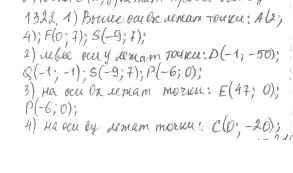 1322. 1) Выше оси ох лежат точки: A(2;
4); F(0; 7); S(-9; 7);
2) левее оси y лежат точки: D(-1; -50);
Q(-1; -1); S(-9; 7); P(-6; 0);
3) на оси ох лежат точки: E(47; 0);
P(-6; 0);
4) на оси оу лежат точки: C(0; -20);